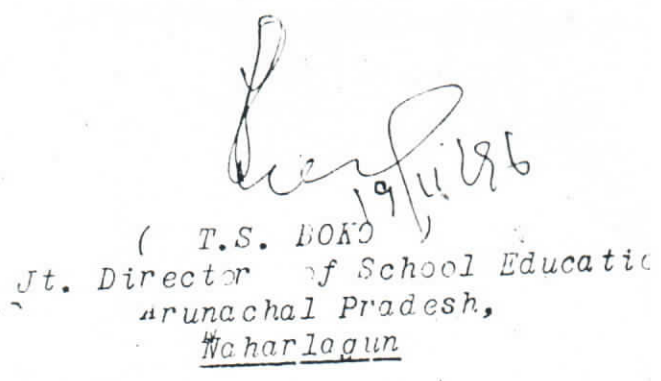 19/11/96
( T.S. DOKO )
Jt. Director of School Educatio
Arunachal Pradesh,
Naharlagun